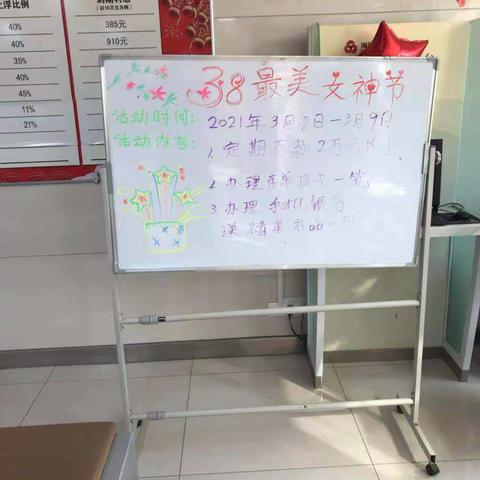 上浮比例
40%
40%
40%
45%
11%
21%
到期利息
(以10万元为例)
385元
910元
38最美女神节
活动时间: 2021年3月8日—3月9日
活动内容: 1. 定期存款2万元以上
2. 办理 一笔
3. 办理手机银行
送精美礼品一份